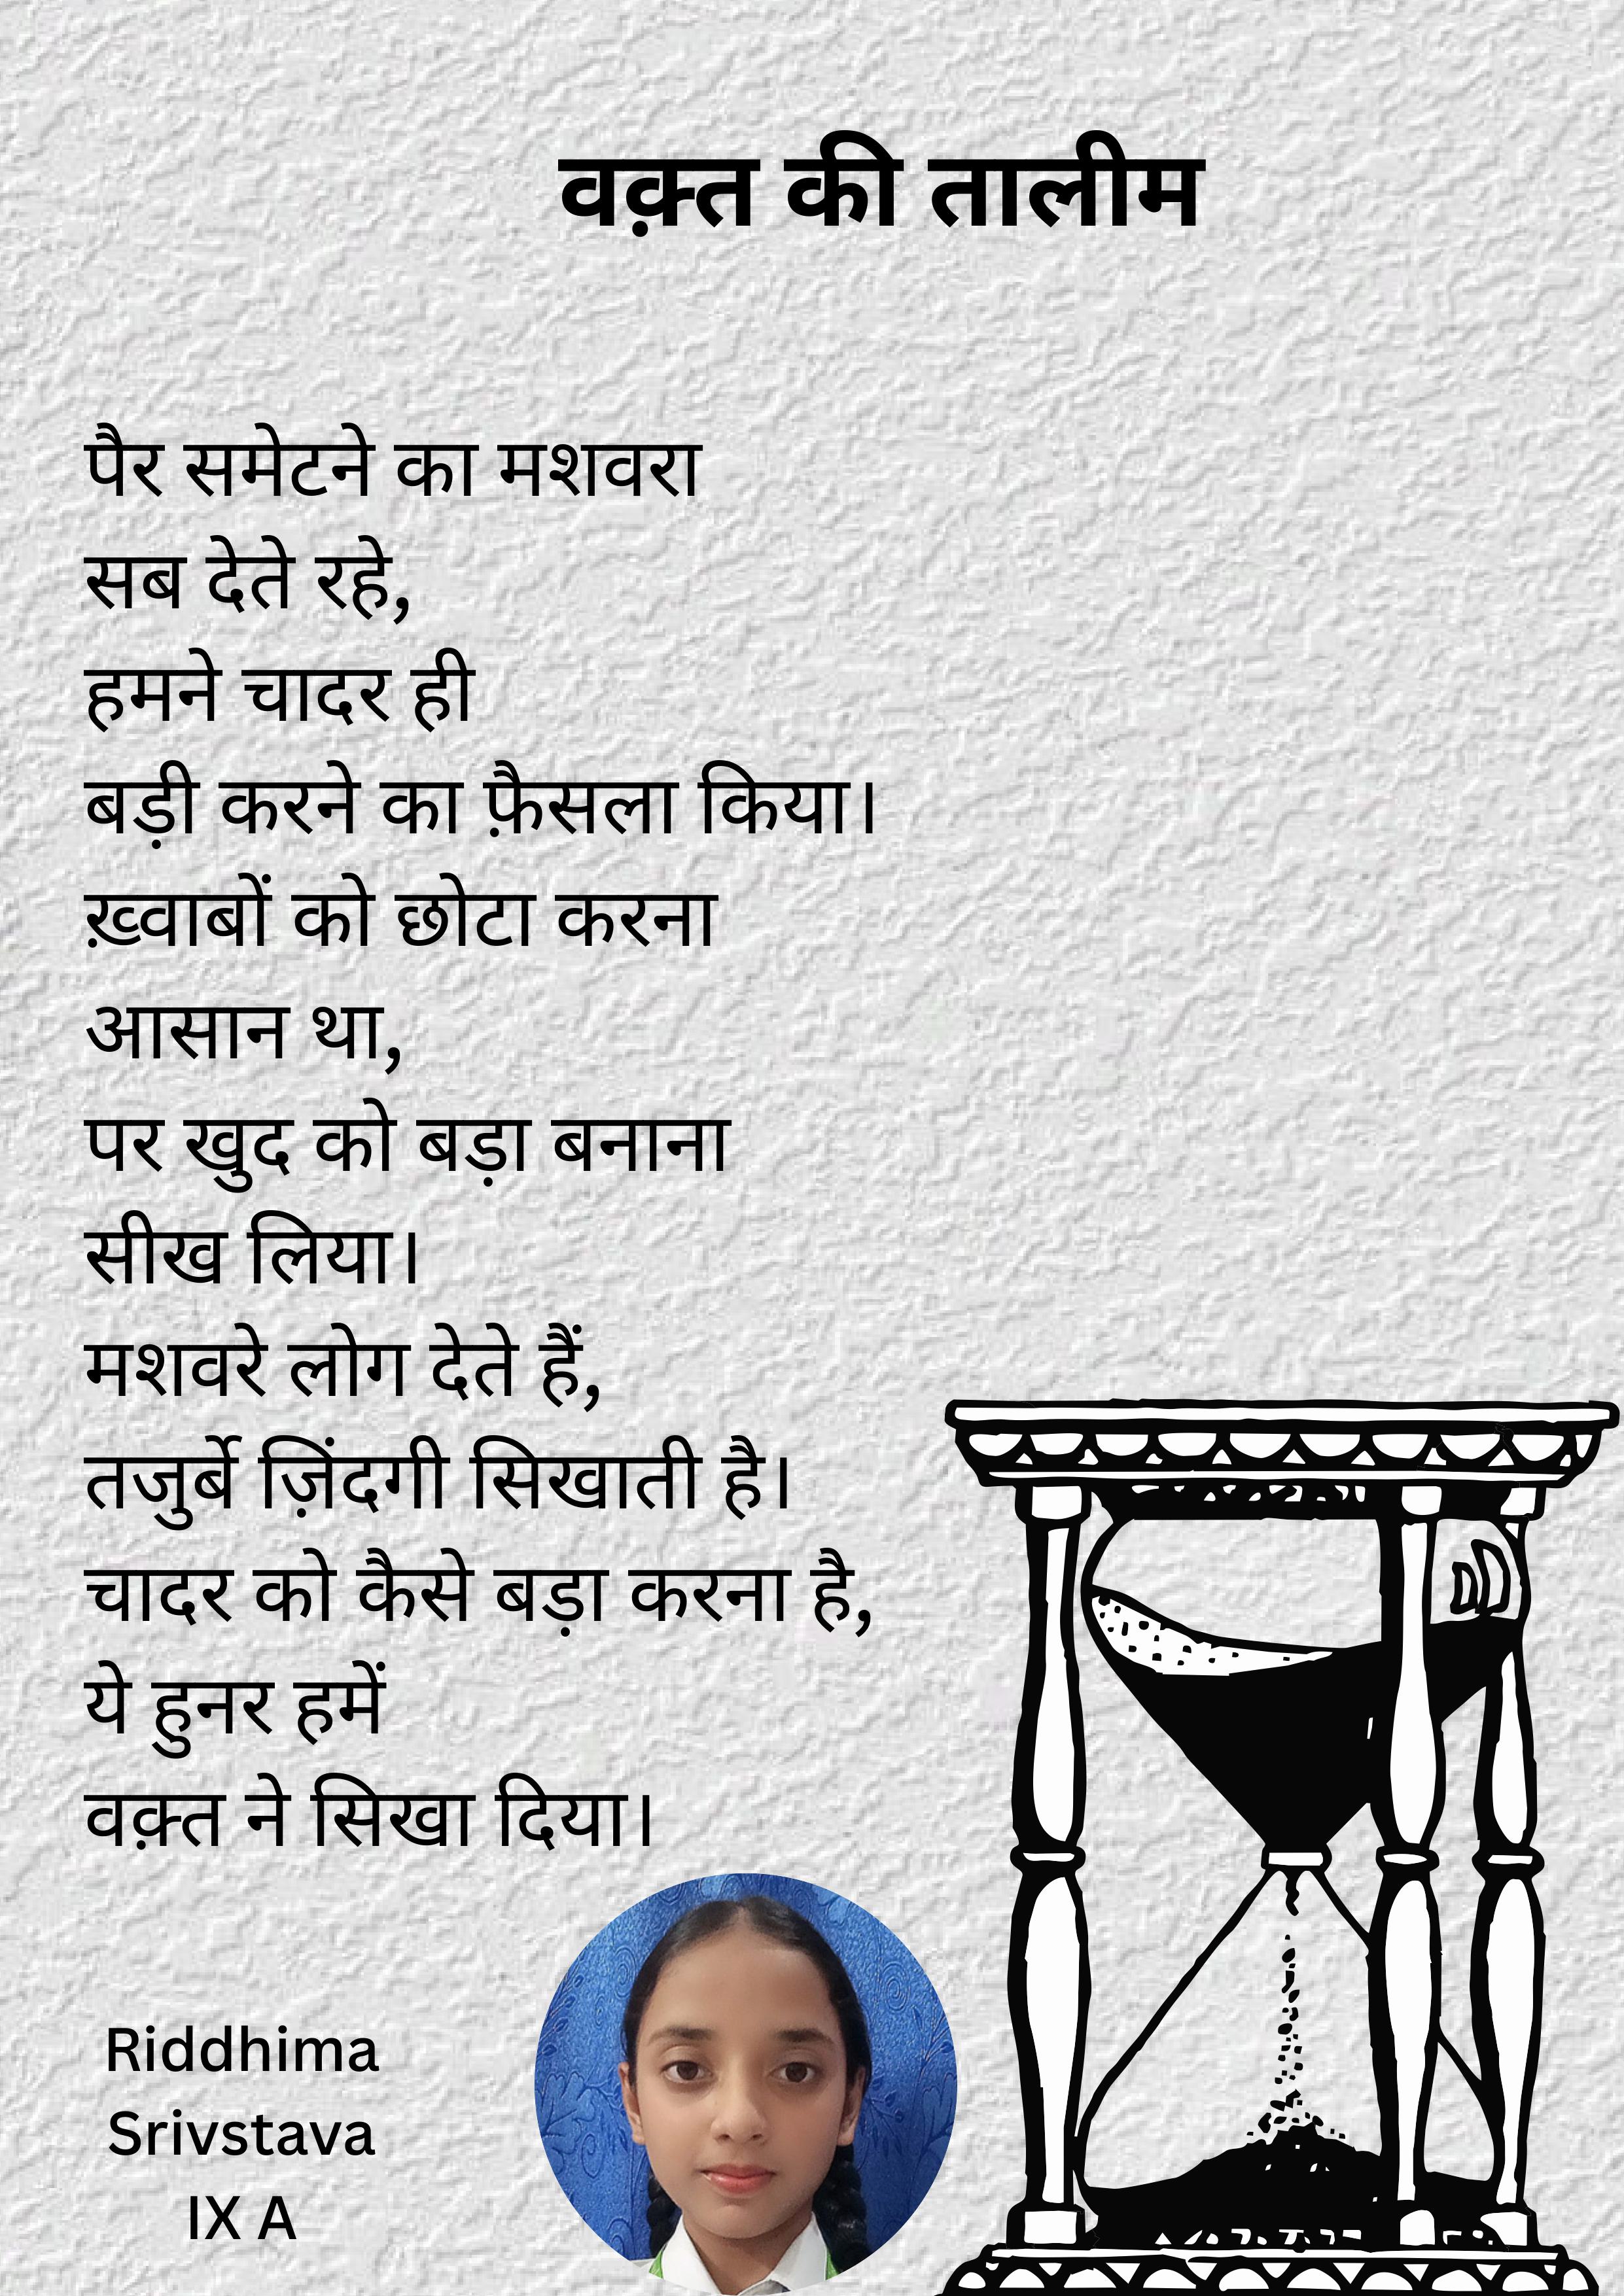 वक़्त की तालीम
पैर समेटने का मशवरा
सब देते रहे,
हमने चादर ही
बड़ी करने का फ़ैसला किया।
ख़्वाबों को छोटा करना
आसान था,
पर खुद को बड़ा बनाना
सीख लिया।
मशवरे लोग देते हैं,
तजुर्बे ज़िंदगी सिखाती है।
चादर को कैसे बड़ा करना है,
ये हुनर हमें
वक़्त ने सिखा दिया।
Riddhima
Srivstava
IX A